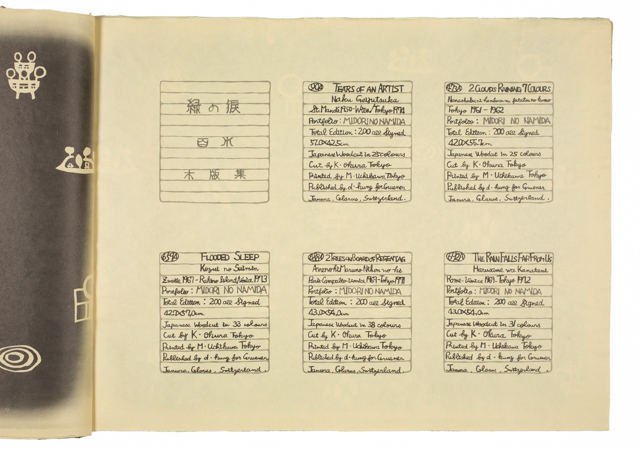 緑の涙
百水
木版集
TEARS OF AN ARTIST
Naku Geijutsuka
Portfolio: MIDORI NO NAMIDA
Total Edition: 200 all Signed
57.0x42.5cm
Japanese Woodcut in 25 colours
Cut by K. Okura Tokyo
Printed by M. Uchikawa Tokyo
Published by d. hung for Gruener
Janura, Glarus, Switzerland.
2 CLOUDS RAINING 7 COLOURS
Tokyo 1961 - 1962
Portfolio: MIDORI NO NAMIDA
Total Edition: 200 all Signed
Japanese Woodcut in 25 colours
Cut by K. Okura Tokyo
Printed by M. Uchikawa Tokyo
Published by d. hung for Gruener
Janura, Glarus, Switzerland.
FLOODED SLEEP
Kozui no Suimin
Portfolio: MIDORI NO NAMIDA
Total Edition: 200 all Signed
Japanese Woodcut in 33 colours
Cut by K. Okura Tokyo
Printed by M. Uchikawa Tokyo
Published by d. hung for Gruener
Janura, Glarus, Switzerland.
Portfolio: MIDORI NO NAMIDA
Total Edition: 200 all Signed
43.0x54.0cm
Japanese Woodcut in 38 colours
Cut by K. Okura Tokyo
Printed by M. Uchikawa Tokyo
Published by d. hung for Gruener
Janura, Glarus, Switzerland.
THE RAIN FALLS FAR FROM US
Portfolio: MIDORI NO NAMIDA
Total Edition: 200 all Signed
43.0x54.0cm
Japanese Woodcut in 31 colours
Cut by K. Okura Tokyo
Printed by M. Uchikawa Tokyo
Published by d. hung for Gruener
Janura, Glarus, Switzerland.